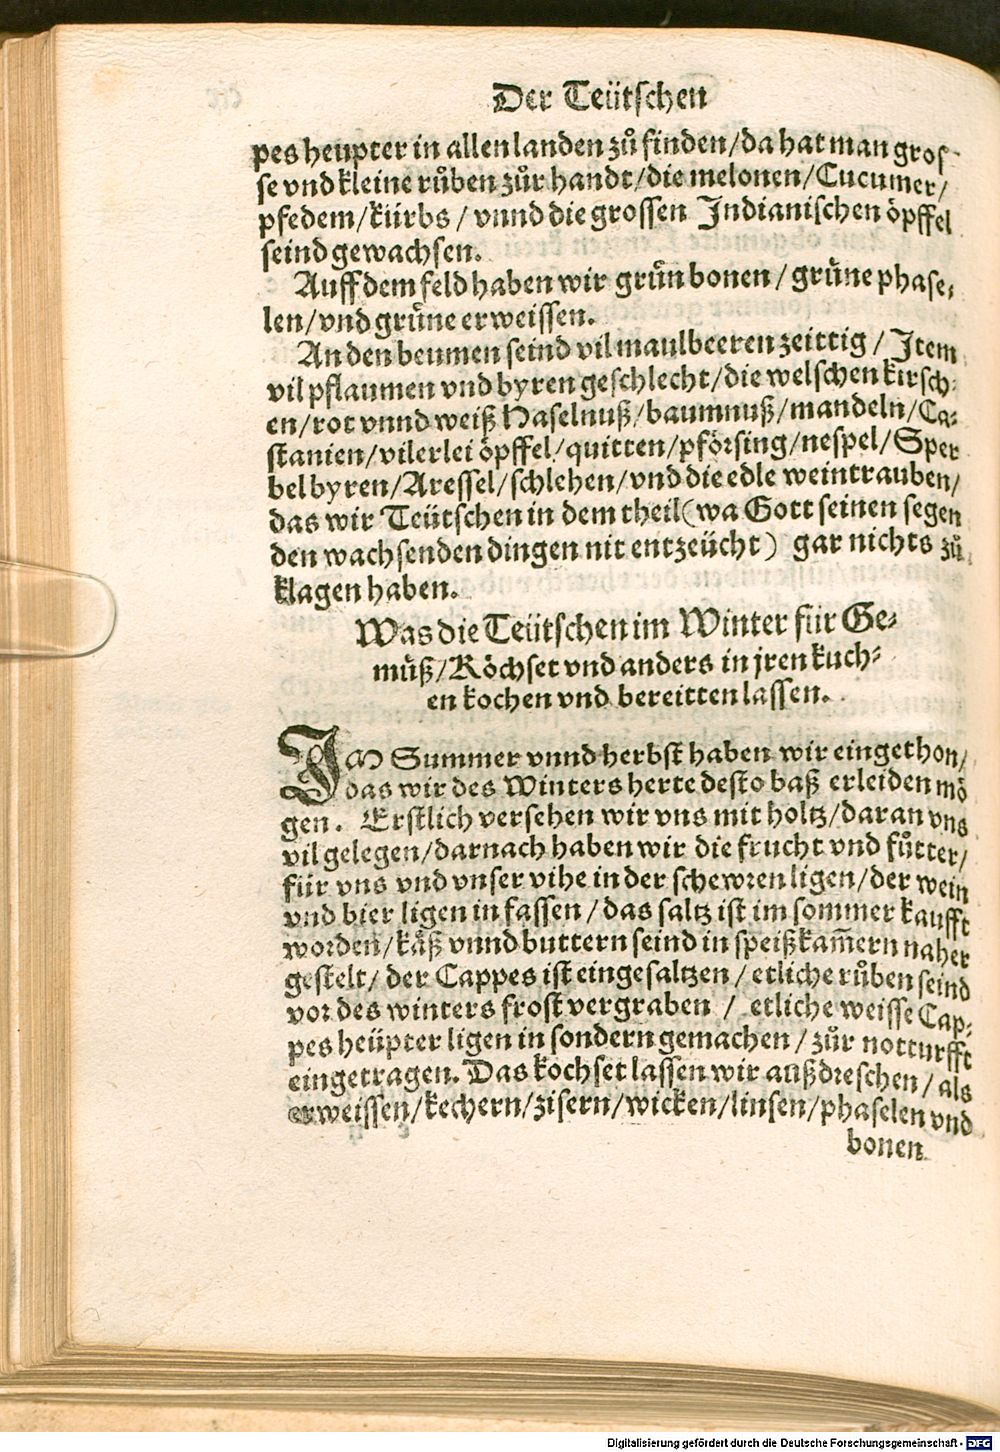 Der Teütschen
pes heupter in allen landen zů finden/da hat man gros-
se vnd kleine růben zůr handt/die melonen/Cucumer/
pfedem/kürbs/vnnd die grossen Indianischen öpffel
seind gewachsen.
Auff dem feld haben wir grün bonen/grüne phase-
len/vnd grüne erweissen.
An den beumen seind vil maulbeeren zeittig/Item
vil pflaumen vnd byren geschlecht/die welschen kirsch-
en/rot vnnd weiß Haselnuß/baumnuß/mandeln/Ca-
stanien/vilerlei öpffel/quitten/pförsing/nespel/Sper
belbyren/Aressel/schlehen/vnd die edle weintrauben/
das wir Teütschen in dem theil (wa Gott seinen segen
den wachsenden dingen nit entzeücht) gar nichts zů
klagen haben.
Was die Teütschen im Winter für Ge-
müß/Köchset vnd anders in jren kuch-
en kochen vnd bereitten lassen.
IM Summer vnnd herbst haben wir eingethon/
das wir des Winters herte desto baß erleiden mö
gen. Erstlich versehen wir vns mit holtz/daran vns
vil gelegen/darnach haben wir die frucht vnd fůtter/
für vns vnd vnser vihe in der schewren ligen/der wein
vnd bier ligen in fassen/das saltz ist im sommer kaufft
worden/käß vnnd buttern seind in speißkam̄ern naher
gestelt/der Cappes ist eingesaltzen/etliche růben seind
vor des winters frost vergraben/etliche weisse Cap-
pes heüpter ligen in sondern gemachen/zůr notturfft
eingetragen. Das kochset lassen wir außdreschen/als
erweissen/kechern/zisern/wicken/linsen/phaselen vnd
bonen
Digitalisierung gefördert durch die Deutsche Forschungsgemeinschaft - DFG